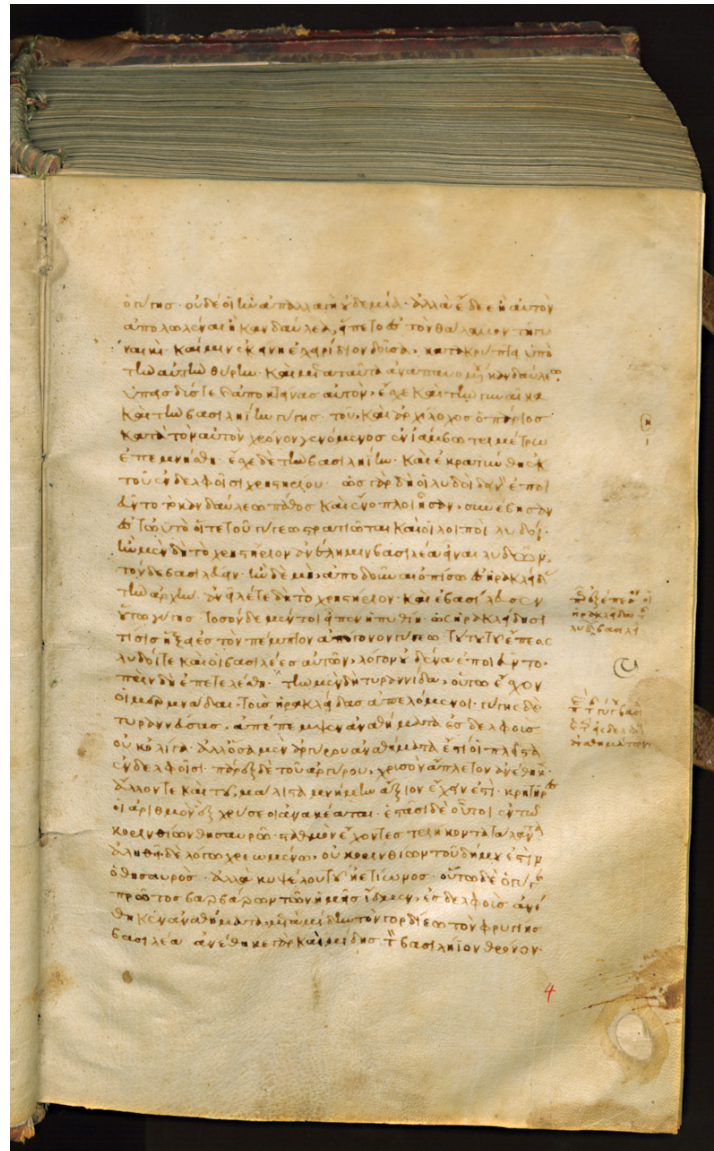 ὁ γύγης· οὐδέ οἱ ἦν ἀπαλλαγὴ οὐδεμία· ἀλλὰ ἔδεε ἢ αὐτὸν
ἀπολωλέναι ἢ κανδαύλεα, εἵπετο ἐς τὸν θάλαμον τῆ γυ
ναικί· καί μιν ἐκείνη ἐγχειρίδιον δοῦσα, κατακρύπτει ὑπὸ
τὴν αὐτὴν θύρην· καὶ μετὰ ταῦτα ἀναπαυομένου κανδαύλεω
ὑπεκδύς τε καὶ ἀποκτείνας αὐτὸν, ἔσχε καὶ τὴν γυναῖκα
καὶ τὴν βασιληίην γύγης· τοῦ, καὶ ἀρχίλοχος ὁ πάριος
κατὰ τὸν αὐτὸν χρόνον γενόμενος ἐν ἰάμβω τριμέτρω
ἐπεμνήσθη· ἔσχε δὲ τὴν βασιληίην· καὶ ἐκρατύνθη ἐκ
τοῦ ἐν δελφοῖσι χρηστηρίου· ὡς γὰρ δὴ οἱ λυδοὶ δεινὸν ἐποι
εῦντο τὸ κανδαύλεω πάθος καὶ ἐν ὅπλοισι ἦσαν, συνέβησαν
ἐς τὠυτὸ οἵ τε τοῦ γύγεω στασιῶται καὶ οἱ λοιποὶ λυδοί·
ἢν μὲν δὴ τὸ χρηστήριον ἀνέλη μιν βασιλέα εἶναι λυδῶν,
τὸν δὲ βασιλεύειν· ἢν δὲ μὴ, ἀποδοῦναι ὀπίσω ἐς ἡρακλείδας
τὴν ἀρχήν· ἀνεῖλέ τε δὴ τὸ χρηστήριον· καὶ ἐβασίλευσεν
οὕτω γύγης· τοσόνδε μέντοι εἶπεν ἡ πυθίη· ὡς ἡρακλείδησι
τίσις ἥξει ἐς τὸν πέμπτον ἀπόγονον γύγεω· τούτου τοῦ ἔπεος
λυδοί τε καὶ οἱ βασιλέες αὐτῶν, λόγον οὐδένα ἐποιεῦντο·
πρὶν δὴ ἐπετελέσθη· τὴν μὲν δὴ τυραννίδα, οὕτω ἔσχον
οἱ μερμνάδαι· τοὺς ἡρακλείδας ἀπελόμενοι· γύγης δὲ
τυραννεύσας, ἀπέπεμψεν ἀναθήματα ἐς δελφοὺς
οὐκ ὀλίγα· ἀλλ' ὅσα μὲν ἀργύρου ἀναθήματα ἔστι οἱ πλεῖστα
ἐν δελφοῖσι· πάρεξ δὲ τοῦ ἀργύρου, χρυσὸν ἄπλετον ἀνέθηκε·
ἄλλον τε καὶ τοῦ, μάλιστα μνήμην ἄξιον ἔχειν ἐστί· κρητῆρες
οἱ ἀριθμὸν ἓξ χρύσεοι ἀνακέαται· ἑστᾶσι δὲ οὗτοι ἐν τῶ
κορινθίων θησαυρῶ· σταθμὸν ἔχοντες τριήκοντα τάλαντα
ἀληθέϊ δὲ λόγω χρεωμένω, οὐ κορινθίων τοῦ δήμου ἐστὶν
ὁ θησαυρὸς· ἀλλὰ κυψέλου τοῦ ἠετίωνος· οὗτος δὲ ὁ γύγης
πρῶτος βαρβάρων τῶν ἡμεῖς ἴδμεν, ἐς δελφοὺς ἀνέ
θηκεν ἀναθήματα, μετὰ μίδην τὸν γορδίεω τὸν φρυγίης
βασιλέα· ἀνέθηκε γὰρ καὶ μίδης τὸν βασιλήιον θρόνον·
4